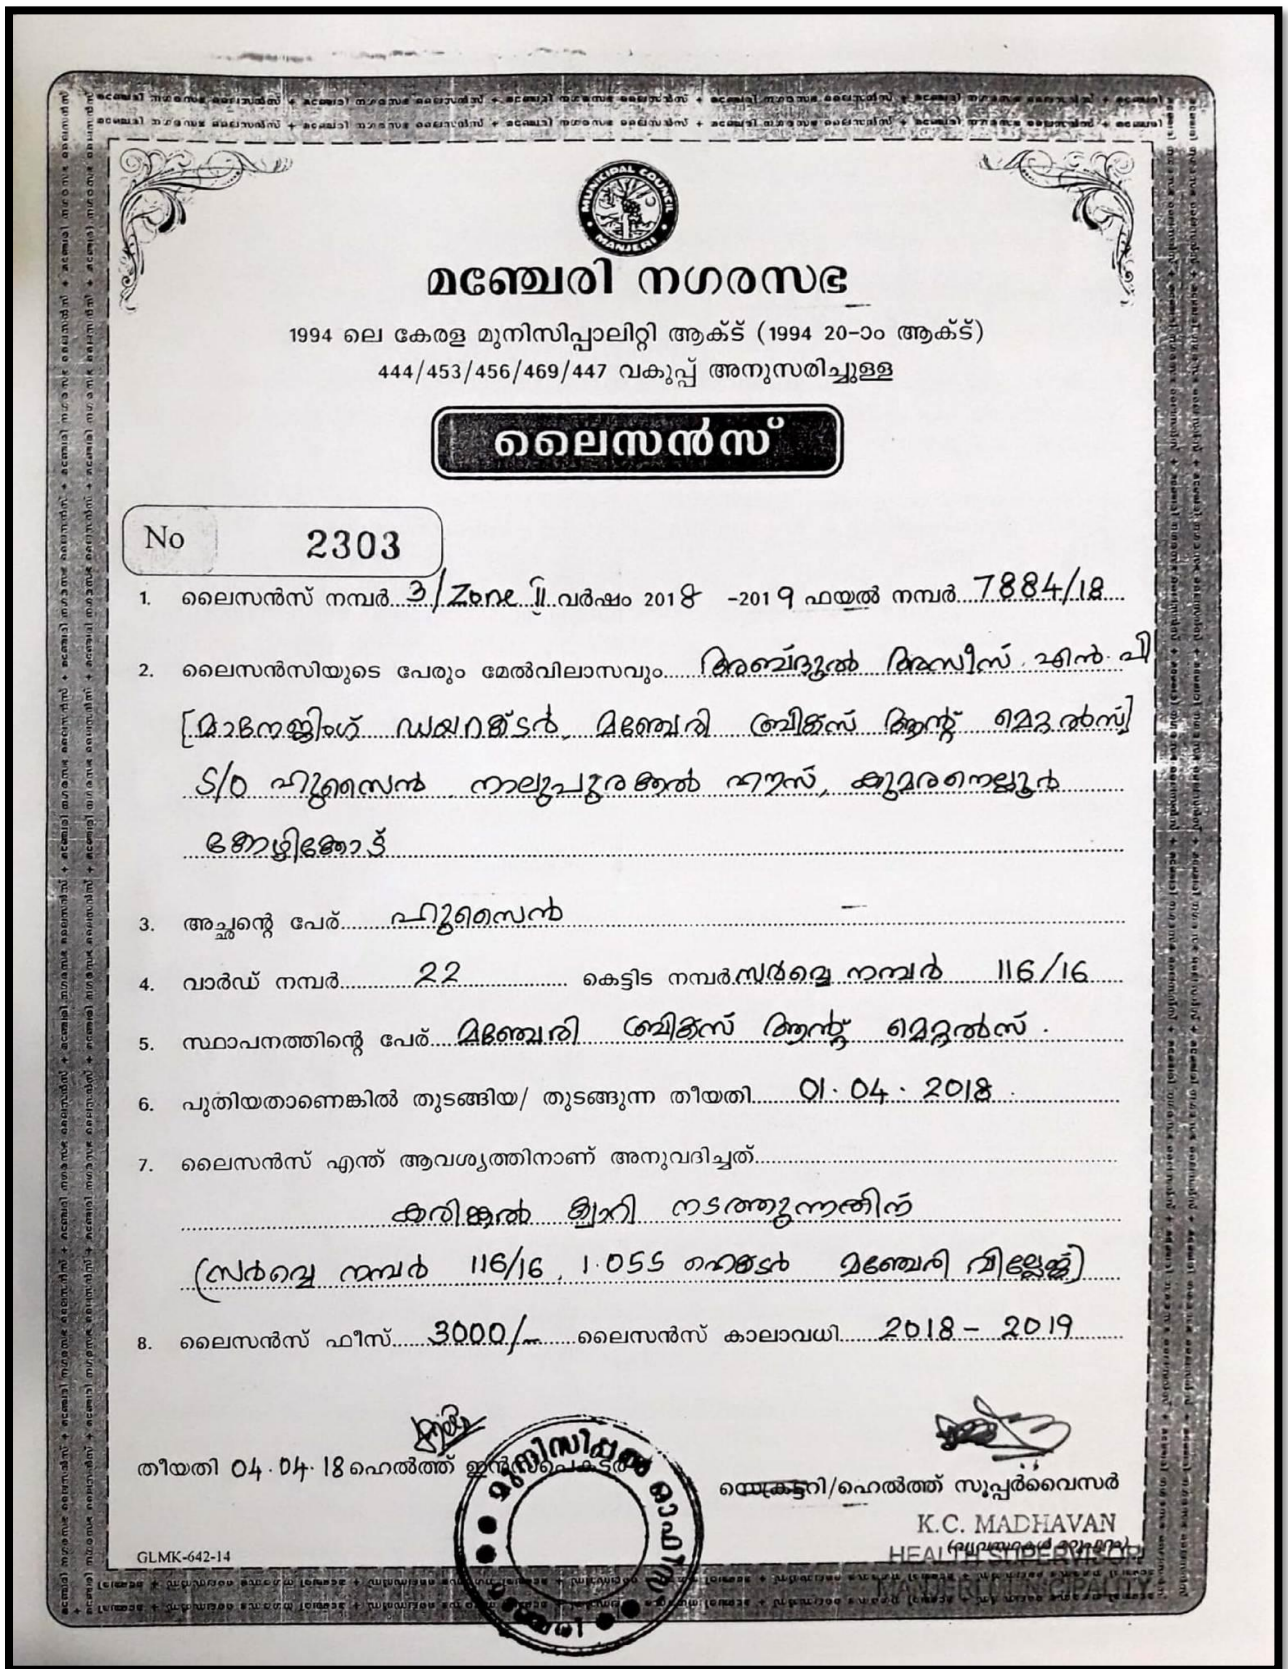 MUNICIPAL COUNCIL
MANJERI
മഞ്ചേരി നഗരസഭ
1994 ലെ കേരള മുനിസിപ്പാലിറ്റി ആക്ട് (1994 20-ാം ആക്ട്)
444/453/456/469/447 വകുപ്പ് അനുസരിച്ചുള്ള
ലൈസൻസ്
No 2303
1. ലൈസൻസ് നമ്പർ 3/Zone II വർഷം 2018 -2019 ഫയൽ നമ്പർ 7884/18
2. ലൈസൻസിയുടെ പേരും മേൽവിലാസവും അബ്ദുൽ അസീസ്. എൻ. പി
[മാനേജിംഗ് ഡയറക്ടർ, മഞ്ചേരി ബ്രിക്സ് ആന്റ് മെറ്റൽസ്]
S/O ഹുസൈൻ, നാലുപുരക്കൽ ഹൗസ്, കുമരനെല്ലൂർ
കോഴിക്കോട്
3. അച്ഛന്റെ പേര് ഹുസൈൻ
4. വാർഡ് നമ്പർ 22 കെട്ടിട നമ്പർ സർവ്വെ നമ്പർ 116/16
5. സ്ഥാപനത്തിന്റെ പേര് മഞ്ചേരി ബ്രിക്സ് ആന്റ് മെറ്റൽസ്.
6. പുതിയതാണെങ്കിൽ തുടങ്ങിയ/ തുടങ്ങുന്ന തീയതി 01.04.2018.
7. ലൈസൻസ് എന്ത് ആവശ്യത്തിനാണ് അനുവദിച്ചത്
കരിങ്കൽ ക്വാറി നടത്തുന്നതിന്
(സർവ്വെ നമ്പർ 116/16, 1.055 ഹെക്ടർ മഞ്ചേരി വില്ലേജ്)
8. ലൈസൻസ് ഫീസ് 3000/- ലൈസൻസ് കാലാവധി 2018 - 2019
തീയതി 04.04.18 ഹെൽത്ത് ഇൻസ്പെക്ടർ
സെക്രട്ടറി/ഹെൽത്ത് സൂപ്പർവൈസർ
മുനിസിപ്പൽ ഓഫീസ്
മഞ്ചേരി
K.C. MADHAVAN
HEALTH SUPERVISOR
MANJERI MUNICIPALITY
GLMK-642-14